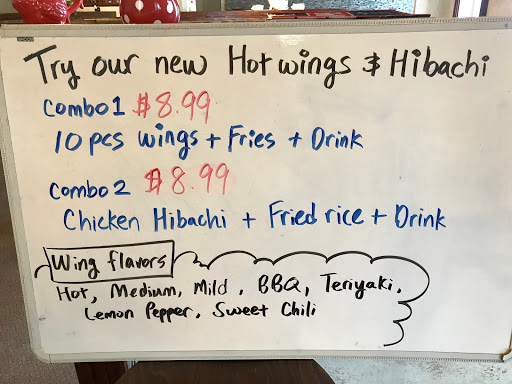 Try our new Hot wings & Hibachi
Combo 1 $8.99
10 pcs wings + Fries + Drink
Combo 2 $8.99
Chicken Hibachi + Fried rice + Drink
Wing flavors
Hot, Medium, Mild, BBQ, Teriyaki,
Lemon Pepper, Sweet Chili